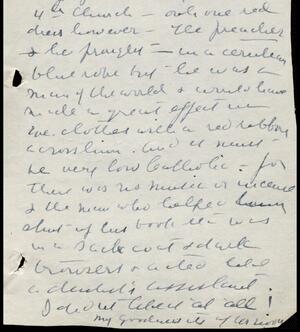 4th Church — only one red
dress however — the preacher
& he prayed — in a cerulean
blue robe but he was a
man of the world & would have
made a great effect in
eve. clothes with a red ribbon
across him. And it must
be very low Catholic — for
there was no music or incense
& the man who helped
shut up his book etc was
in a sack coat & dark
trousers & acted like
a dentist's assistant.
I didn't like it at all!
My goodness its afternoon